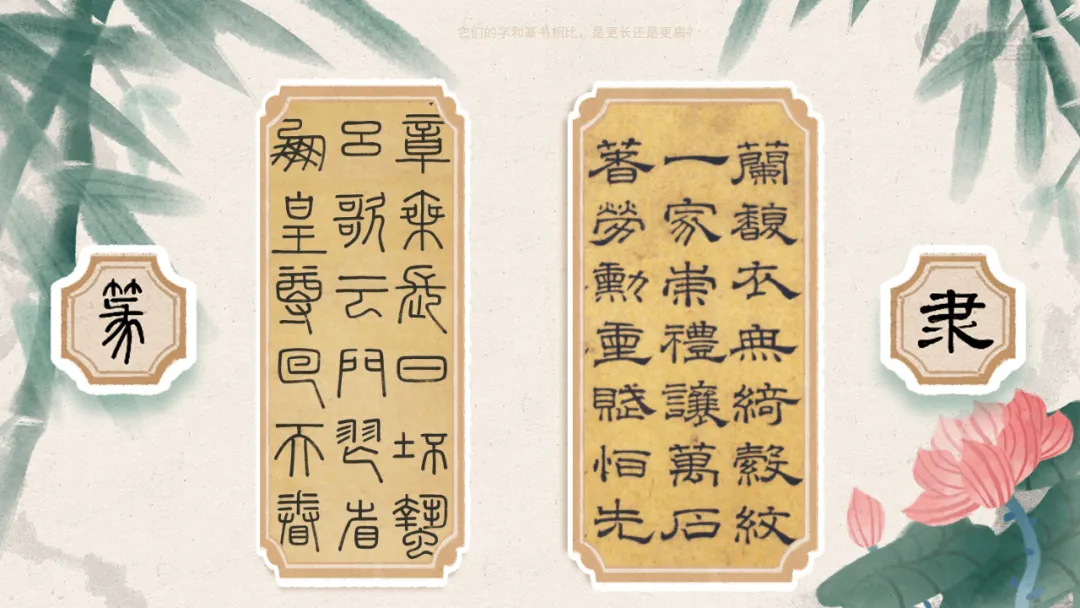 它们的字和篆书相比，是更长还是更扁？
篆
章乘武曰
吕歌云門習省
皇尊回不眷
蘭馥衣無綺縠紋
一家崇禮讓萬石
著勞勳重賦恒先
隶